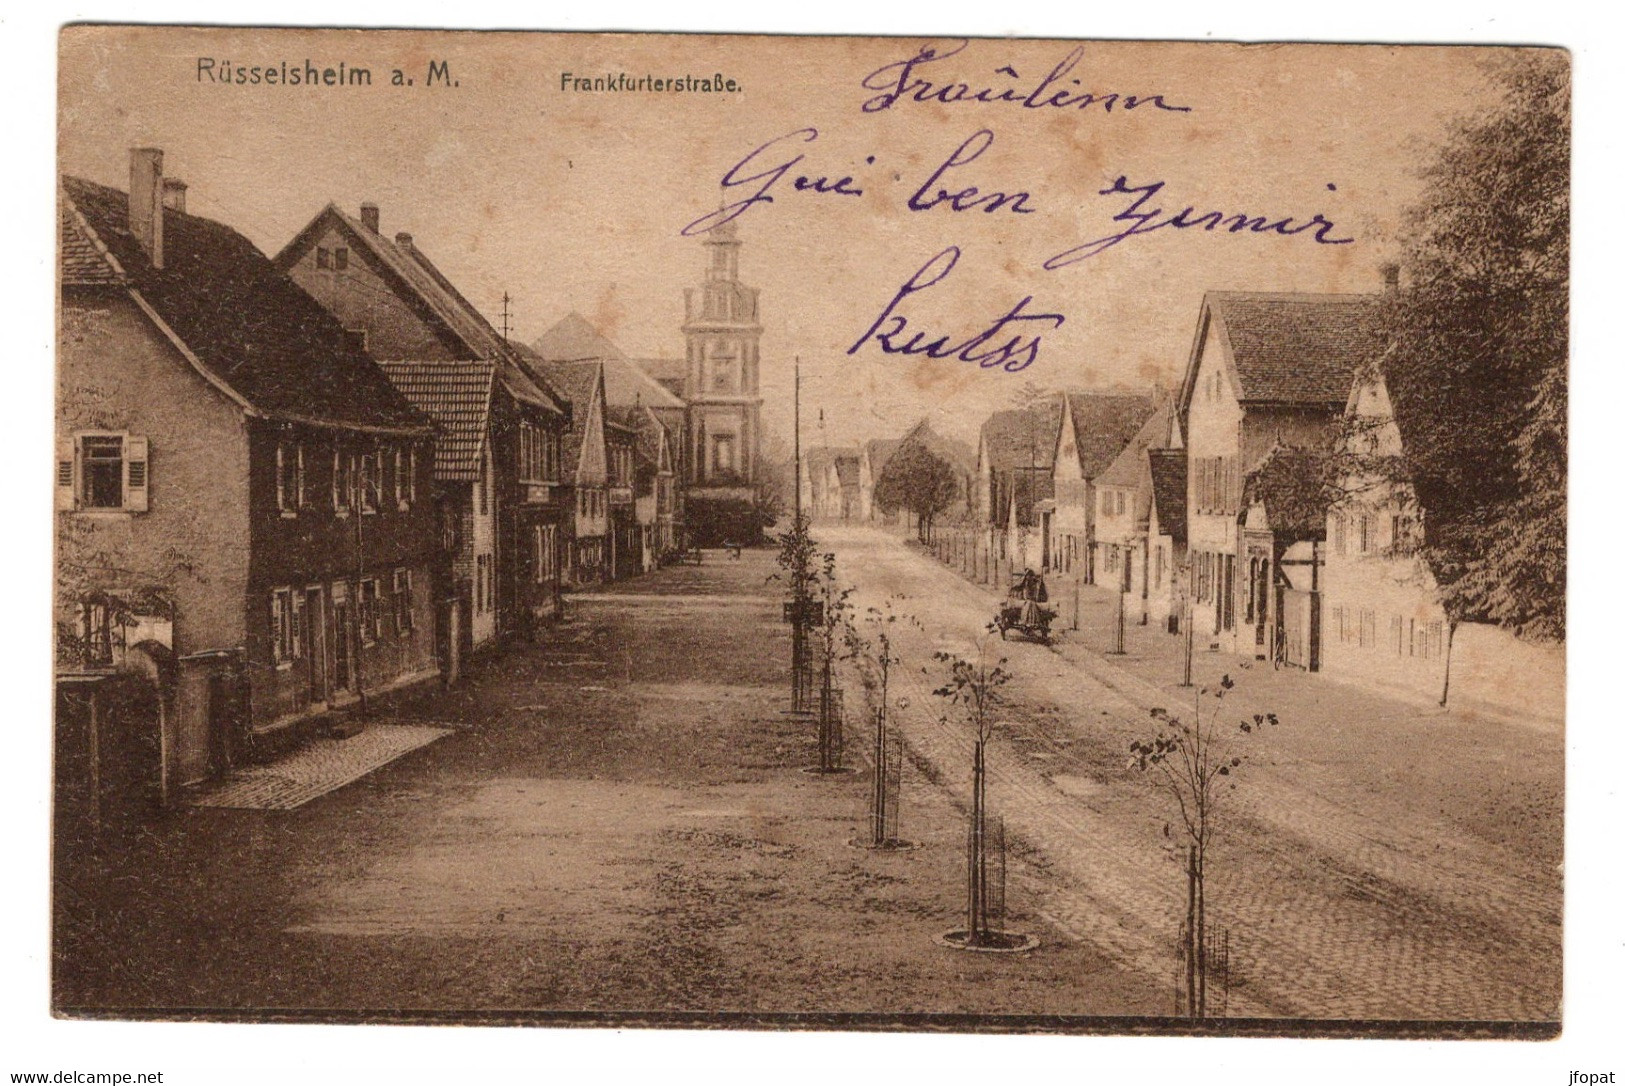 Rüsselsheim a. M.
Frankfurterstraße.
Fraûlinn
Guei ben Zemir
kutss
delcampe.net
jfopat